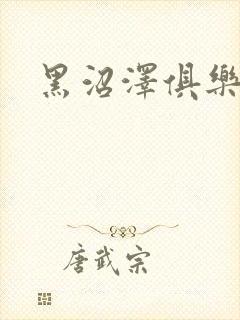 黑沼澤俱樂
唐武宗